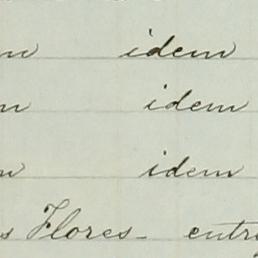 idem
idem
idem
Flores -